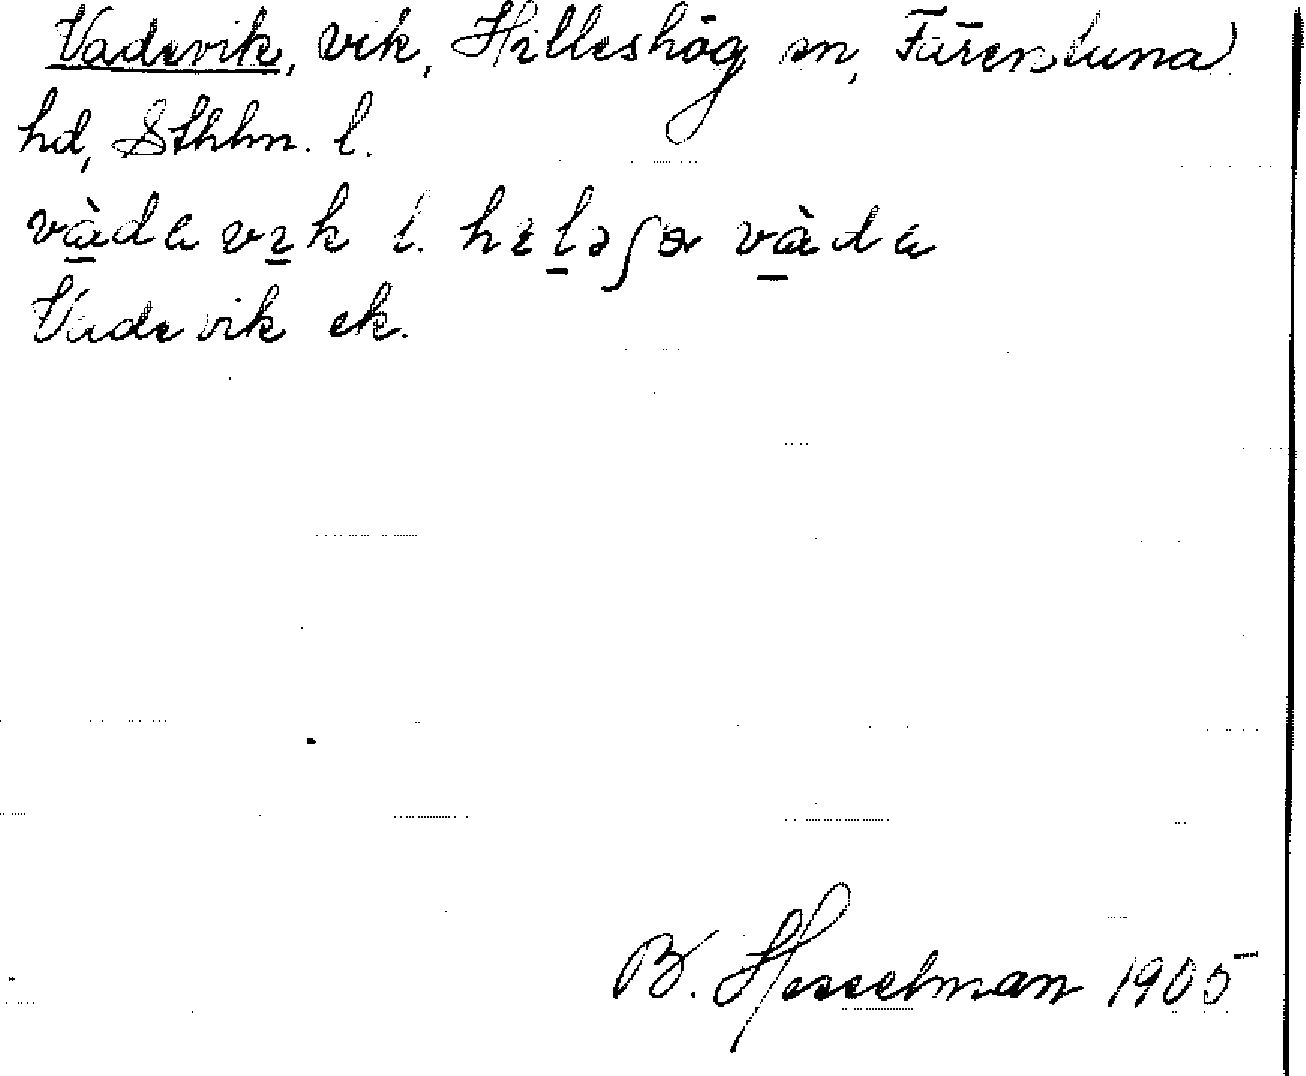 Vadevik, vik, Hilleshög sn, Färentuna
hd, Sthlm. l.
vàda vik l. hiləʃɵ vàda
Vadevik ek.
B. Hesselman 1905